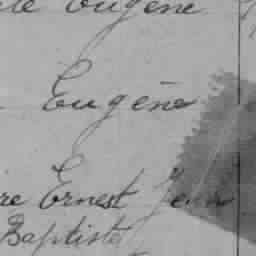 Eugène
Eugène
re Ernest Jean
Baptiste